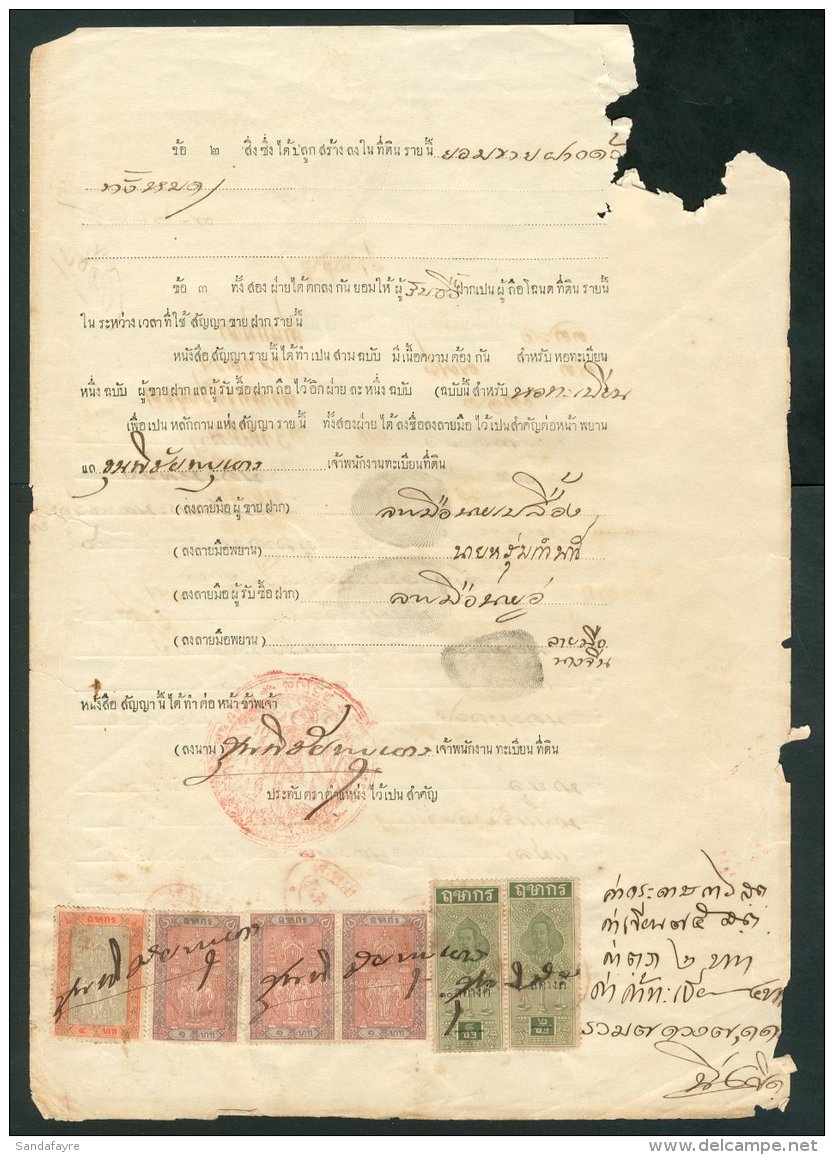 ข้อ ๒ สิ่งซึ่งได้ปลูกสร้างลงในที่ดินรายนี้ ยอมขายฝากด้วย
ทั้งหมด
ข้อ ๓ ทั้งสองฝ่ายได้ตกลงกันยอมให้ผู้รับซื้อฝากเปนผู้ถือโฉนดที่ดินรายนี้
ในระหว่างเวลาที่ใช้สัญญาขายฝากรายนี้
หนังสือสัญญารายนี้ได้ทำเปนสามฉบับ มีเนื้อความต้องกัน สำหรับหอทะเบียน
หนึ่งฉบับ ผู้ขายฝากแลผู้รับซื้อฝากถือไว้อีกฝ่ายละหนึ่งฉบับ (ฉบับนี้สำหรับ หอทะเบียน
เพื่อเปนหลักถานแห่งสัญญารายนี้ ทั้งสองฝ่ายได้ลงชื่อลงลายมือไว้เปนสำคัญต่อหน้าพยาน
แล เจ้าพนักงานทะเบียนที่ดิน
(ลงลายมือผู้ขายฝาก) ลายมือนายเปลื้อง
(ลงลายมือพยาน)
(ลงลายมือผู้รับซื้อฝาก) ลายมือ
(ลงลายมือพยาน) ลายมือ
นางจีน
หนังสือสัญญานี้ได้ทำต่อหน้าข้าพเจ้า
(ลงนาม) เจ้าพนักงานทะเบียนที่ดิน
ประทับตราตำแหน่งไว้เปนสำคัญ
ฤชากร ฤชากร ฤชากร ฤชากร ฤชากร ฤชากร
๔ บาท ๑ บาท ๑ บาท ๑ บาท
ค่ากระดาษ
ค่าเขียน ๗๕ ส.ต.
ค่า ๒ บาท
รวม ๗ ดวง ๗,๑๑
Sandafayre
www.delcampe.net